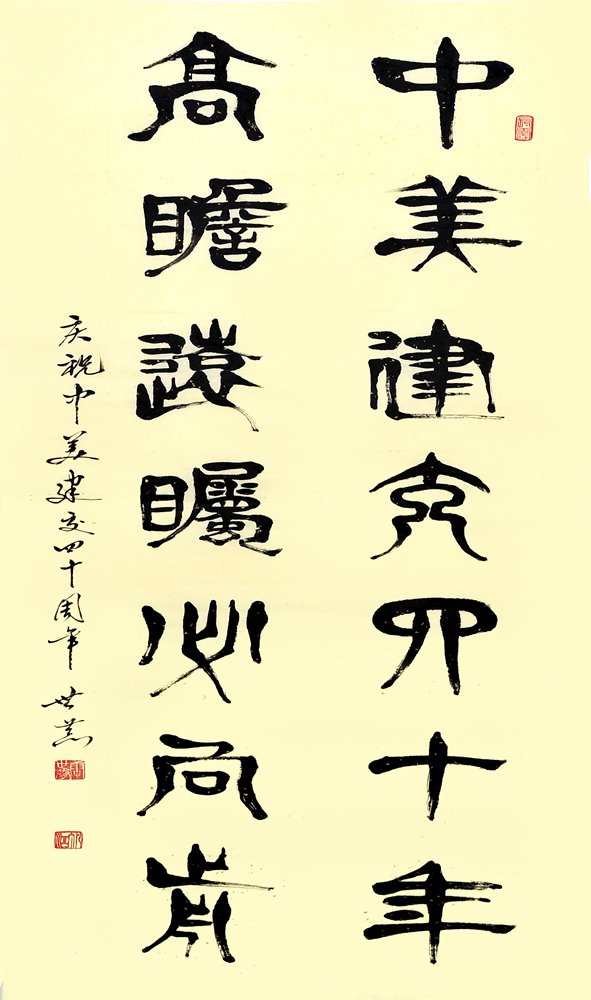 中美建交四十年
高瞻遠矚必向前
庆祝中美建交四十周年 世